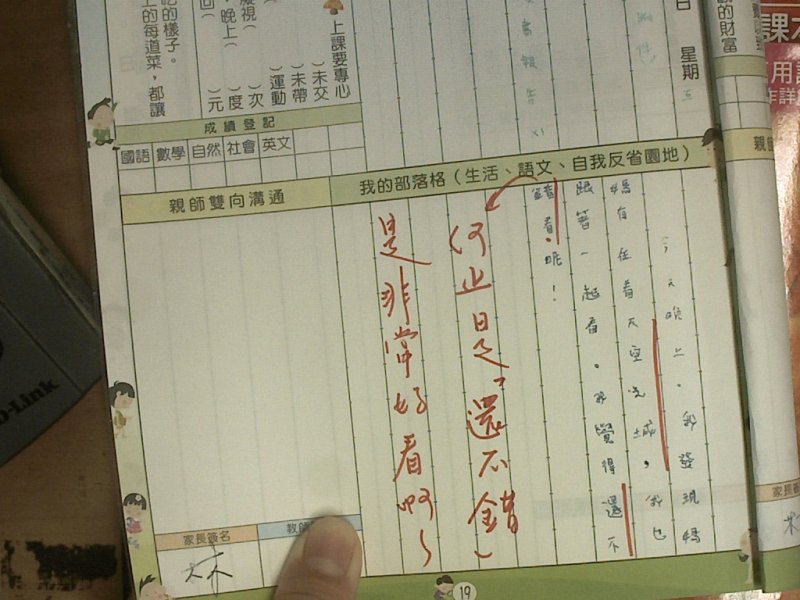 課本
用
作詳
的財富
日 星期 五
上課要專心
( )未交
( )未帶
( )運動
( )次
( )度
( )元
晚上(
回(
的樣子。
上的每道菜，都讓
成績登記
國語 數學 自然 社會 英文
親師雙向溝通
我的部落格(生活、語文、自我反省園地)
今天晚上，我發現媽
媽有在看天空之城，我也
跟著一起看。我覺得還不
錯看呢！
何止是「還不錯」
是非常好看啊~
家長簽名
林
教師
19
親師
家長簽
D-Link